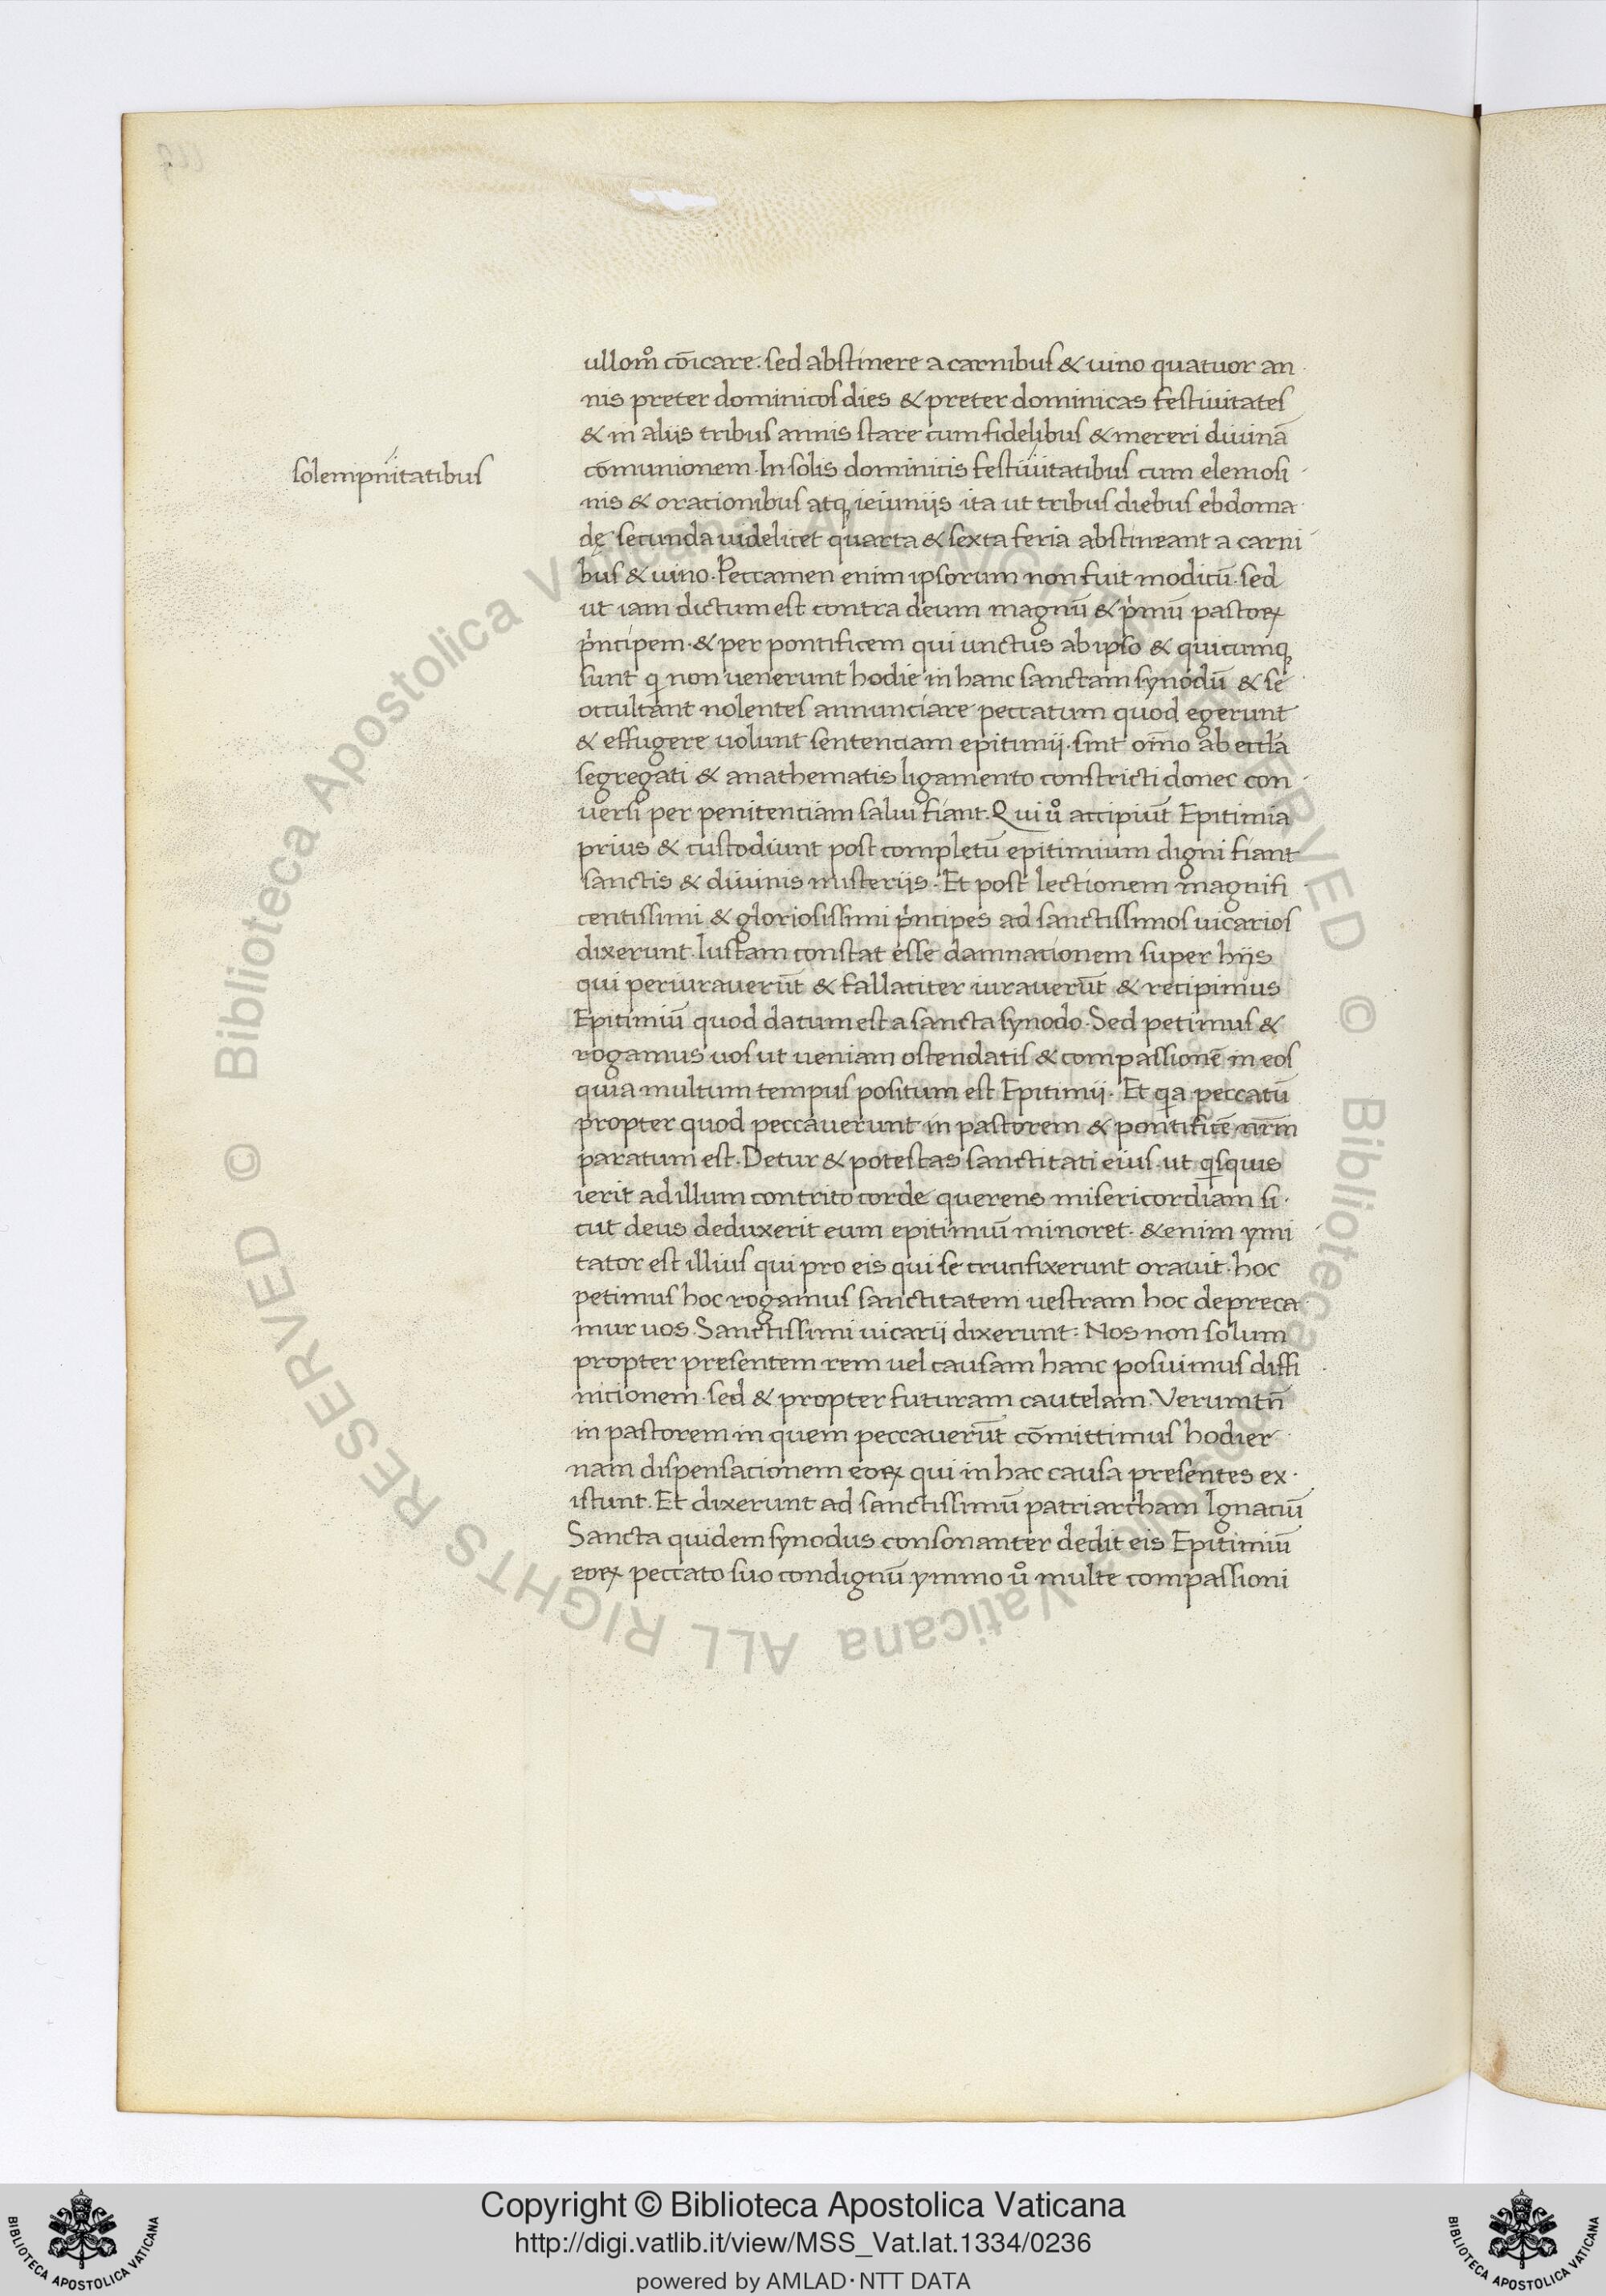 ullomͦ cōicare. sed abstinere a carnibus & uino quatuor an
nis preter dominicos dies & preter dominicas festiuitates
& in aliis tribus annis stare cum fidelibus & mereri diuinā
solempnitatibus
cōmunionem. In solis dominicis festiuitatibus cum elemosi
nis & orationibus atq; ieiuniis ita ut tribus diebus ebdoma
dę secunda uidelicet quarta & sexta feria abstineant a carni
bus & uino. Peccamen enim ipsorum non fuit modicū. sed
ut iam dictum est contra deum magnū & pͥmū pastoꝝ
pͥncipem. & per pontificem qui unctus ab ipso & quicumq;
sunt qͥ non uenerunt hodie in hanc sanctam synodū & se
occultant nolentes annunciare peccatum quod egerunt
& effugere uolunt sententiam epitimii. sint om̄o ab eccl̄a
segregati & anathematis ligamento constricti donec con
uersi per penitentiam salui fiant. Qui uͦ accipiūt Epitimia
prius & custodiunt post completū epitimium digni fiant
sanctis & diuinis misteriis. Et post lectionem magnifi
centissimi & gloriosissimi pͥncipes ad sanctissimos uicarios
dixerunt. Iustam constat esse damnationem super hiis
qui periurauerūt & fallaciter iurauerūt & recipimus
Epitimiū quod datum est a sancta synodo. Sed petimus &
rogamus uos ut ueniam ostendatis & compassionē in eos
quia multum tempus positum est Epitimii. Et qͥa peccatū
propter quod peccauerunt in pastorem & pontificē nr̄m
paratum est. Detur & potestas sanctitati eius. ut qͥsquis
ierit ad illum contrito corde querens misericordiam si
cut deus deduxerit eum epitimiū minoret. & enim ymi
tator est illius qui pro eis qui se crucifixerunt orauit. hoc
petimus hoc rogamus sanctitatem uestram hoc depreca
mur uos. Sanctissimi uicarii dixerunt: Nos non solum
propter presentem rem uel causam hanc posuimus diffi
nicionem. sed & propter futuram cautelam. Verumtn̄
in pastorem in quem peccauerūt cōmittimus hodier
nam dispensacionem eoꝝ qui in hac causa presentes ex
istunt. Et dixerunt ad sanctissimū patriarcham Ignatiū
Sancta quidem synodus consonanter dedit eis Epitimiū
eoꝝ peccato suo condignū ymmo uͦ multe compassioni
© Biblioteca Apostolica Vaticana ALL RIGHTS RESERVED © Biblioteca Apostolica Vaticana ALL RIGHTS RESERVED
Copyright © Biblioteca Apostolica Vaticana
http://digi.vatlib.it/view/MSS_Vat.lat.1334/0236
powered by AMLAD·NTT DATA
BIBLIOTECA APOSTOLICA VATICANA
BIBLIOTECA APOSTOLICA VATICANA